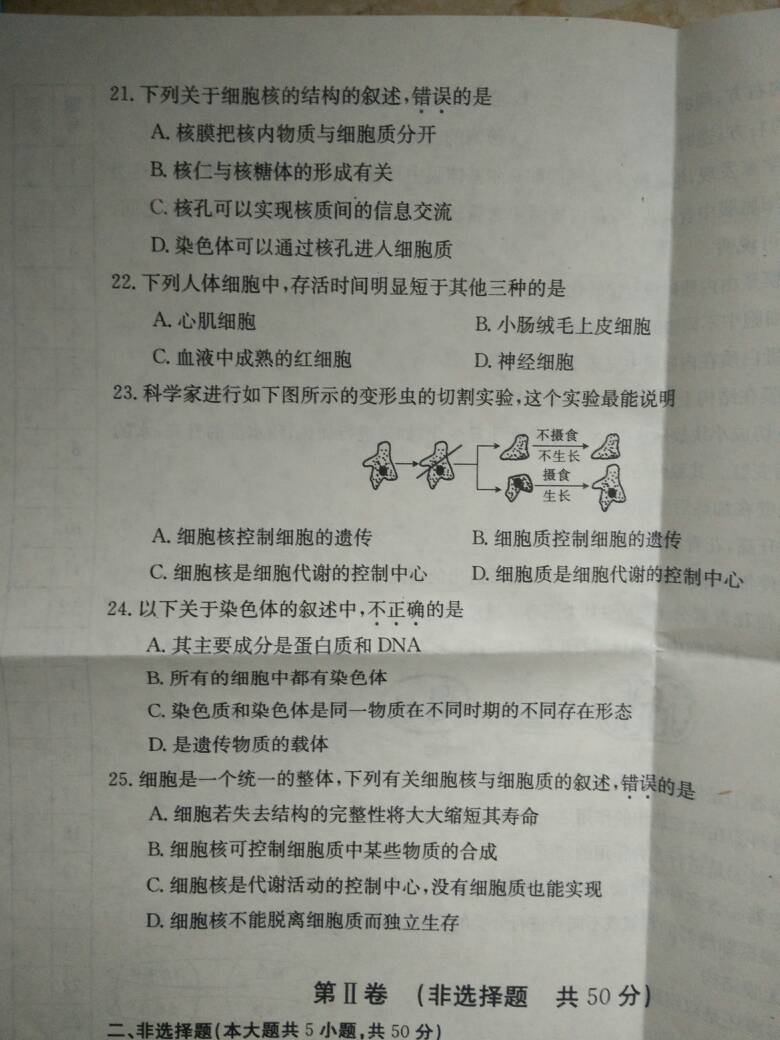 21. 下列关于细胞核的结构的叙述,错误的是
A. 核膜把核内物质与细胞质分开
B. 核仁与核糖体的形成有关
C. 核孔可以实现核质间的信息交流
D. 染色体可以通过核孔进入细胞质
22. 下列人体细胞中,存活时间明显短于其他三种的是
A. 心肌细胞 B. 小肠绒毛上皮细胞
C. 血液中成熟的红细胞 D. 神经细胞
23. 科学家进行如下图所示的变形虫的切割实验,这个实验最能说明
不摄食
不生长
摄食
生长
A. 细胞核控制细胞的遗传 B. 细胞质控制细胞的遗传
C. 细胞核是细胞代谢的控制中心 D. 细胞质是细胞代谢的控制中心
24. 以下关于染色体的叙述中,不正确的是
A. 其主要成分是蛋白质和 DNA
B. 所有的细胞中都有染色体
C. 染色质和染色体是同一物质在不同时期的不同存在形态
D. 是遗传物质的载体
25. 细胞是一个统一的整体,下列有关细胞核与细胞质的叙述,错误的是
A. 细胞若失去结构的完整性将大大缩短其寿命
B. 细胞核可控制细胞质中某些物质的合成
C. 细胞核是代谢活动的控制中心,没有细胞质也能实现
D. 细胞核不能脱离细胞质而独立生存
第Ⅱ卷 (非选择题 共 50 分)
二、非选择题(本大题共 5 小题,共 50 分)